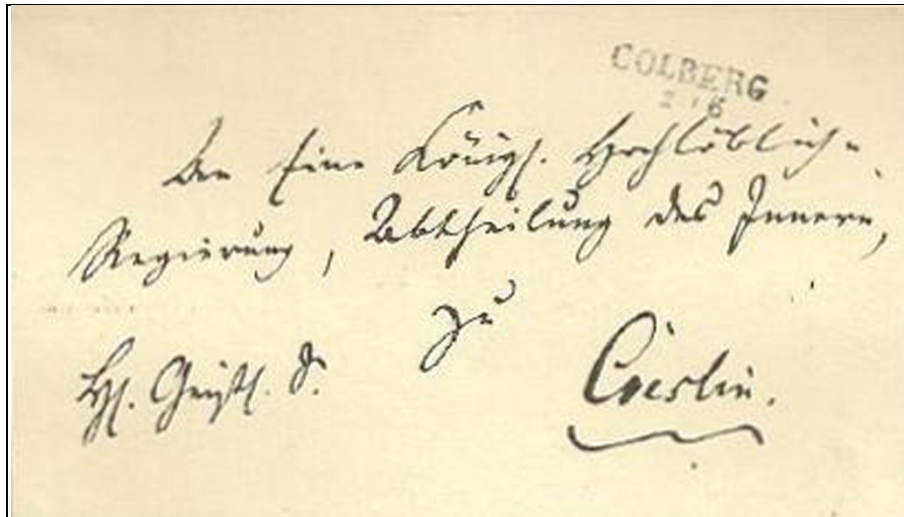 COLBERG
An Eine Königl. Hochlöbliche
Regierung, Abtheilung des Innern,
zu
Coeslin.